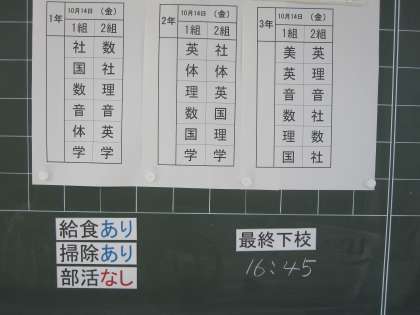 1年 10月14日 (金)
1組 2組
社 数
国 社
数 理
音 音
体 英
学 学
2年 10月14日 (金)
1組 2組
英 社
体 体
理 英
数 国
国 理
学 学
3年 10月14日 (金)
1組 2組
美 英
英 理
音 音
数 社
理 数
国 社
給食あり
掃除あり
部活なし
最終下校
16:45